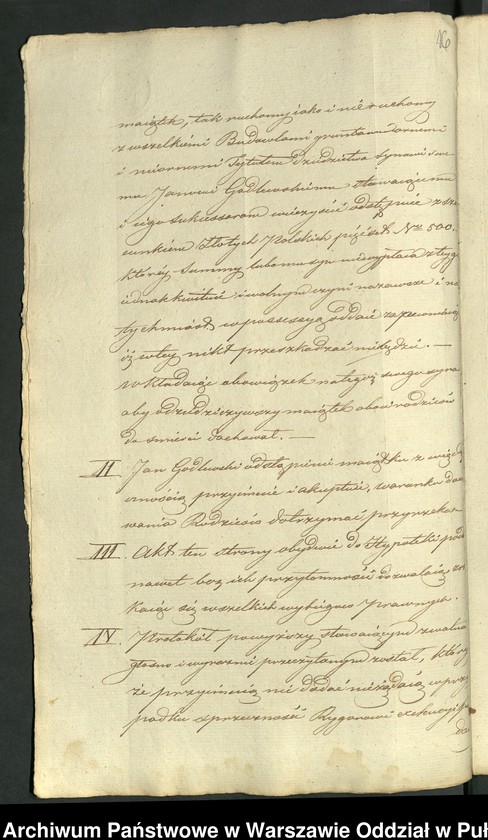 16
maiątek, tak ruchomy iako i nieruchomy
z wszelkiemi Budowlami gruntami ornemi
i nieornemi Tytułem dziedzictwa synowi swe
mu Janowi Godlewskiemu stawaiącemu
i iego sukcessorom wieczyście odstępuie z sza
cunkiem Złotych Polskich pięćset Nro 500.
którey summy lubo mu syn nie wypłaca z teyże
iednak kwituie i wolnym czyni na zawsze i na
tychmiast w possessyą oddaie zapewniaiąc
iż w tey nikt przeszkadzać nie będzie. —
wkładaiąc obowiązek na tegoż swego syna
aby odziedziczywszy maiątek oboie rodziców
do śmierci dochował. —
II Jan Godlewski odstąpienie maiątku z wdzię
cznością przyimuie i akceptuie, warunku docho
wania Rodziców dotrzymać przyrzeka.
III. Akt ten strony obydwie do Hypoteki podać
nawet bez ich przytomności dozwalaią zrze
kaiąc się wszelkich wybiegów prawnych.
IV. Protokół powyższy stawaiącym
głośno i wyraźnie przeczytanym został, który
że przyimuią nic dodać nie żądaią w przy
padku sprzeczności Rygorowi exekucyi
Archiwum Państwowe w Warszawie Oddział w Puł